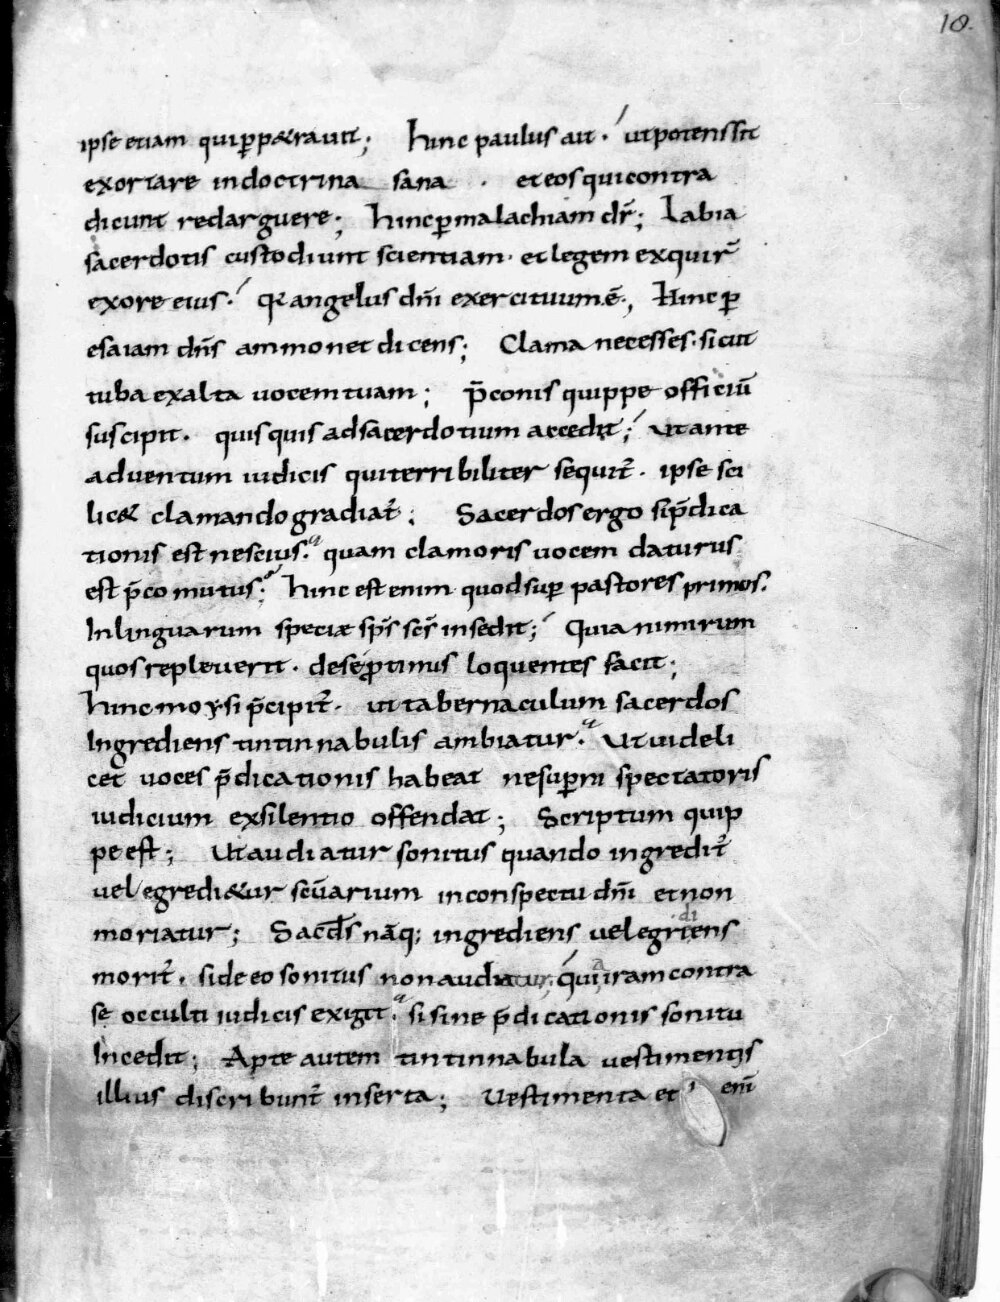 18.
ipse etiam qui ꝑpetrauit; hinc paulus ait · ut potens sit
exortare in doctrina sana · et eos qui contra
dicunt redarguere; hinc ꝑ malachiam dr̄; Labia
sacerdotis custodiunt scientiam · et legem exquir̄
ex ore eius · Qꝛ angelus dn̄i exercituum ē; Hinc ꝑ
esaiam dn̄s ammonet dicens; Clama ne cesses · sicut
tuba exalta uocem tuam; p̄conis quippe officiū
suscipit · quisquis ad sacerdotium accedit; ut ante
aduentum iudicis qui terribiliter sequit̄ · ipse sci
lic& clamando gradiat̄; Sacerdos ergo si p̄dica
tionis est nescius · quam clamoris uocem daturus
est p̄co mutus; hinc est enim quod suꝑ pastores primos ·
In linguarum speciae sp̄s sc̄s insedit; Quia nimirum
quos repleuerit · de se ꝓtinus loquentes facit;
hinc moysi p̄cipit̄ · ut tabernaculum sacerdos
Ingrediens tintinnabulis ambiatur · Ut uideli
cet uoces p̄dicationis habeat ne suꝑni spectatoris
iudicium ex silentio offendat; Scriptum quip
pe est; Ut audiatur sonitus quando ingredit̄
uel egredi&ur sc̄uarium in conspectu dn̄i et non
moriatur; Sacd̄s nāq; ingrediens uel egrediens
morit̄ · si de eo sonitus non audiatur; quia iram contra
se occulti iudicis exigit · si sine p̄dicationis sonitu
Incedit; Apte autem tintinnabula uestimentis
illius discribunt̄ inserta; Uestimenta et eni̅